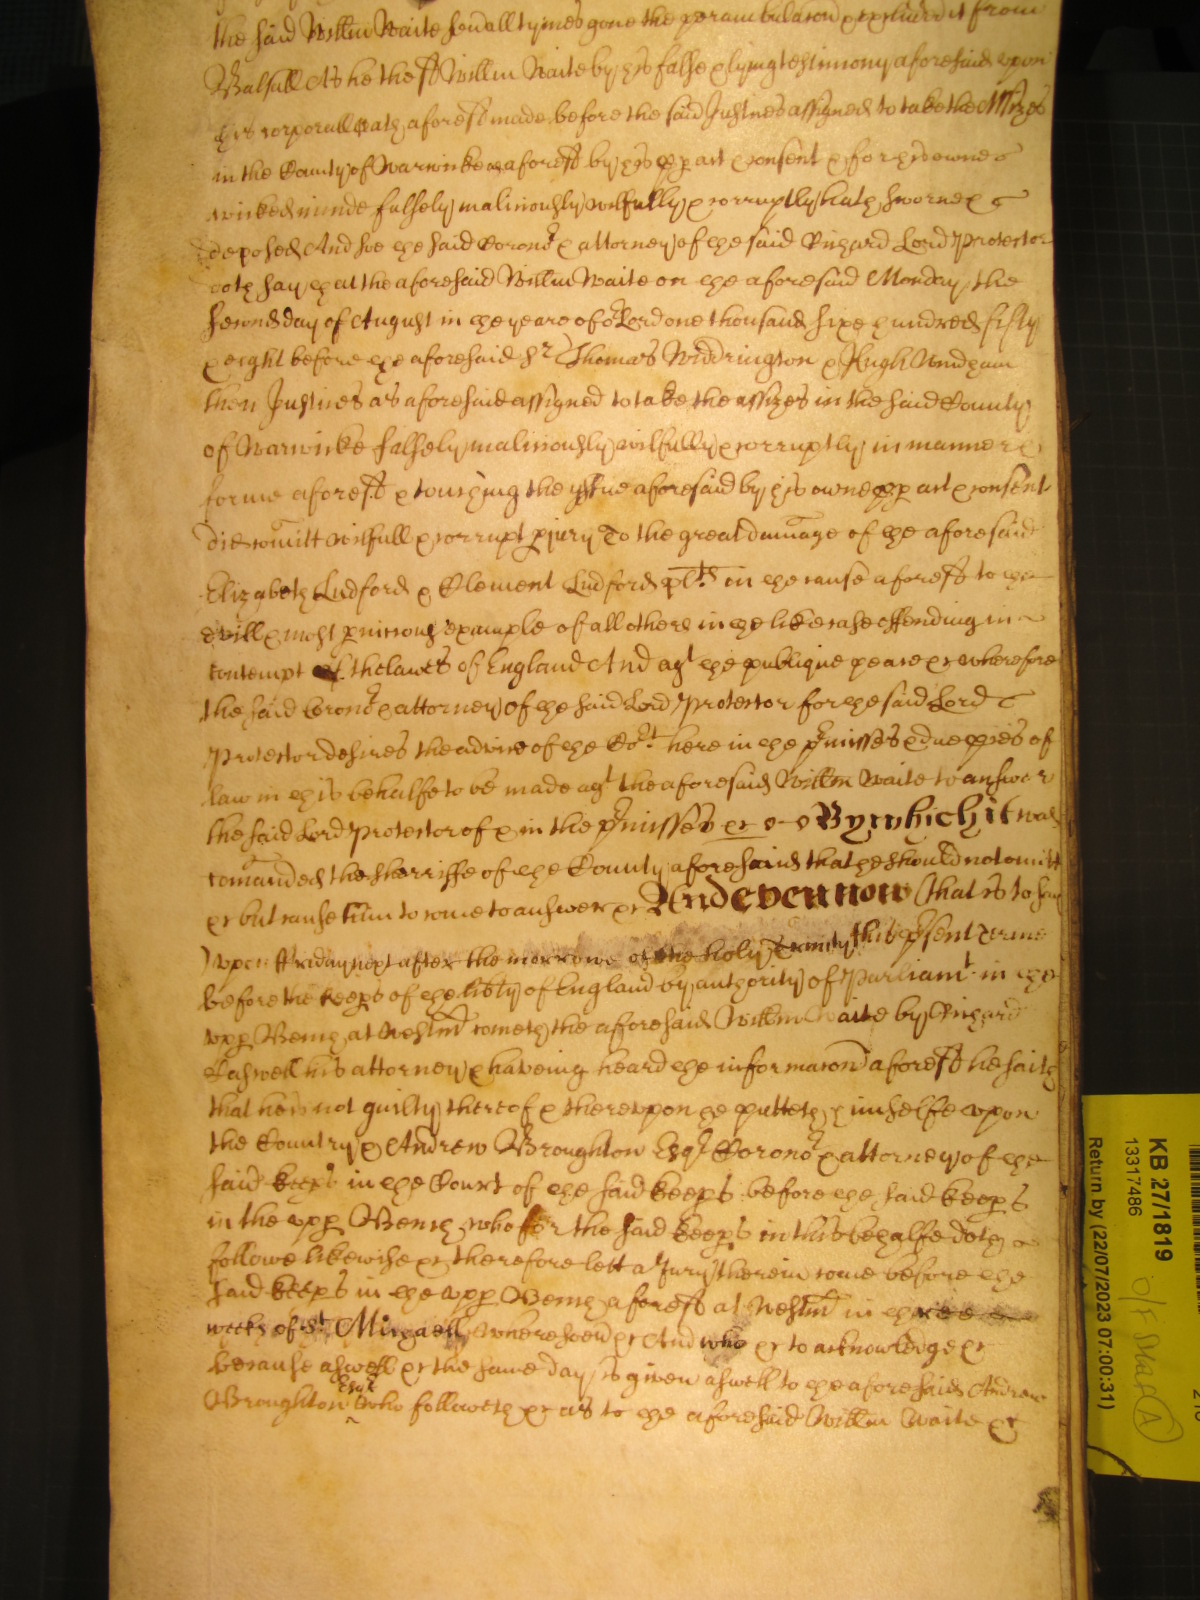 the said Willm Waite sevall tymes gone the perambulacon & exclud it from
Balsall As he the sd Willm Waite by his false & lying testimony aforesaid upon
his corporall oath aforesd made before the said Justices assigned to take the Assizes
in the County of Warwicke aforesd by his pp act & consent & for his owne
wicked minde falsely maliciously wilfully & corruptly hath sworne &
deposed And soe the said Corono & attorney of the said Richard Lord Protector
doth say that the aforesaid Willm Waite on the aforesaid Monday the
second day of August in the yeare of or Lord one thousand sixe hundred fifty
& eight before the aforesaid Sr Thomas Widdrington & Hugh Windham
then Justices as aforesaid assigned to take the assizes in the said County
of Warwicke falsely maliciously wilfully & corruptly in manner &
forme aforesd & touching the yssue aforesaid by his owne pp act & consent
did comitt wilfull & corrupt pjury To the great damage of the aforesaid
Elizabeth Ludford & Clement Ludford plts in the cause aforesd to the
evill & most pnicious example of all others in the like case offending in
contempt of the lawes of England And agt the publique peace &c wherefore
the said Corono & attorney of the said Lord Protector for the said Lord
Protector desires the advice of the Cot here in the pmisses & due pces of
law in this behalfe to be made agt the aforesaid Willm Waite to answer
the said Lord Protector of & in the pmisses &c By which it was
comanded the sherriffe of the County aforesaid that he should not omitt
&c but cause him to come to answer &c And even now that is to say
upon ffriday next after the morrowe of the holy Trinity this psent terme
before the keeps of the libty of England by authority of Parliamt in the
upp Bench at Westm cometh the aforesaid Willm Waite by Richard
Caswell his attorney & haveing heard the informacon aforesd he saith
that he is not guilty thereof & thereupon he putteth himselfe upon
the Country & Andrew Broughton Esqr Corono & attorney of the
said keeps in the Court of the said keeps before the said keeps
in the upp Bench who for the said keeps in this behalfe doth
followe likewise &c therefore lett a Jury therein come before the
said keeps in the upp Bench aforesd at Westm in three
weeks of St Michaell wheresoevr &c And who &c to acknowledge &c
because aswell &c the same day is given aswell to the aforesaid Andrew
Broughton Esqr who followeth &c as to the aforesaid Willm Waite &c
KB 27/1819
13317486
Return by (22/07/2023 07:00:31)